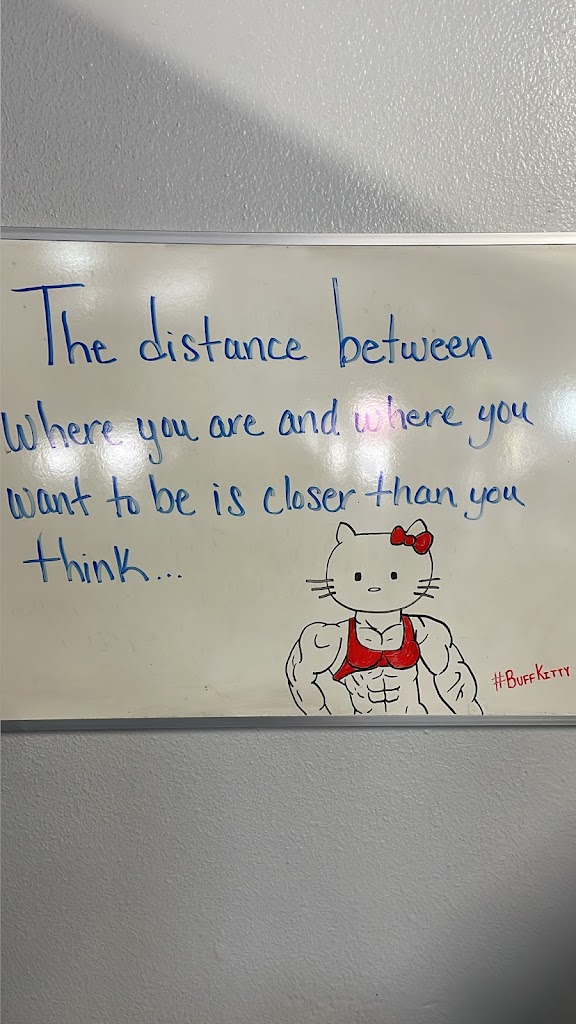 The distance between
Where you are and where you
want to be is closer than you
think...
#BUFFKITTY